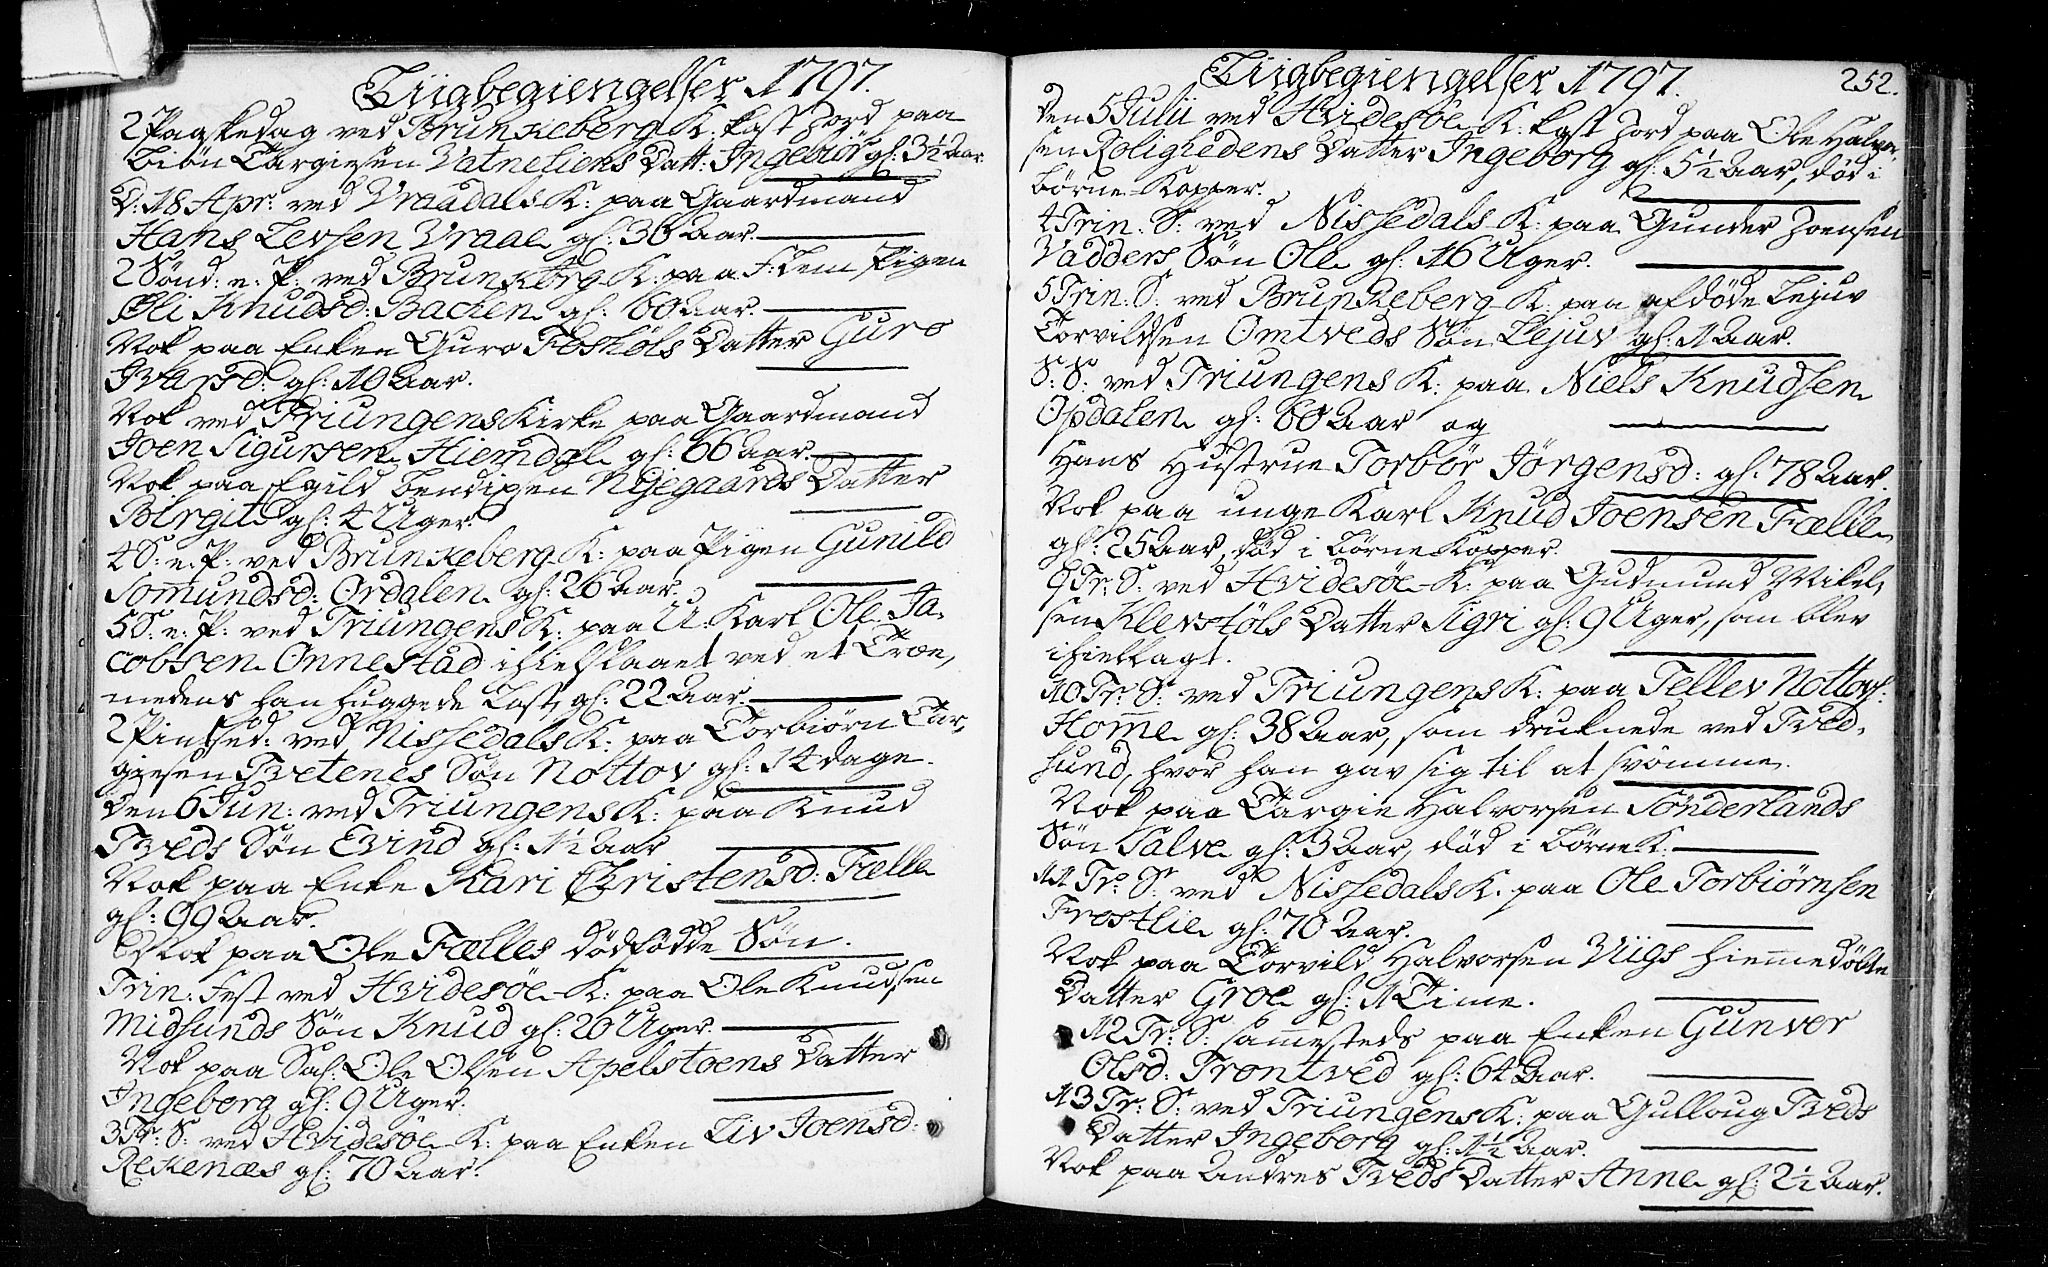 Liigbegiengelser 1797.
2 Paaskedag ved Brunkeberg K: kast Jord paa
Biön Targiesen Vatneliens Datt: Ingebiör gl: 3½ Aar
D: 18 Apr: ved Vraadals K: paa Gaardmand
Hans Levsen Vraae gl: 36 Aar.
2 Sönd: e: P: ved Brunkberg K: paa F: Lem Pigen
Oli Knudsd: Bachen gl: 60 Aar.
Nok paa Enken Guro Foshöls Datter Guro
Ivarsd: gl: 10 Aar.
Nok ved Triungens Kirke paa Gaardmand
Joen Sigursen Hiemdal gl: 66 Aar.
Nok paa Egild Bendixen Nyegaards Datter
Birgit gl: 4 Uger.
4 S: e: P: ved Brunkeberg K: paa Pigen Gunild
Somundsd: Ordalen gl: 26 Aar.
5 S: e: P: ved Triungens K: paa U: Karl Ole Ja-
cobsen Onnestad ihielslaaet ved et Træe,
medens han huggede Last, gl: 22 Aar.
2 Pintsed: ved Nissedals K: paa Torbiörn Tar-
giesen Tvetenes Sön Nottov gl: 14 dage.
Den 6 Jun: ved Triungens K: paa Knud
Tveds Sön Evind gl: 1½ Aar
Nok paa Enke Kari Christensd: Fælle
gl: 99 Aar.
Nok paa Ole Fælles dödfödde Sön.
Trin: Fest ved Hvidesöe K: paa Ole Knudsen
Midsunds Sön Knud gl: 20 Uger.
Nok paa Sal: Ole Olsen Apelstoens Datter
Ingeborg gl: 9 Uger.
3 Tr: S: ved Hvidesöe K: paa Enken Liv Joensd:
Rekenæs gl: 70 Aar.
Liigbegiengelser 1797.
252.
Den 5 Julii ved Hvidesöe K: kast Jord paa Ole Halvor-
sen Rolighedens Datter Ingeborg gl: 5½ Aar, död i
Börne-Kopper.
4 Trin: S: ved Nissedals K: paa Gunder Joensen
Vadders Sön Ole gl: 16 Uger.
5 Trin: S: ved Brunkeberg K: paa afdöde Lejuv
Torvildsen Omtveds Sön Lejuv gl: 1 Aar.
S: S: ved Triungens K: paa Niels Knudsen
Opdalen gl: 60 Aar og
Hans Hustrue Torbör Jörgensd: gl: 78 Aar.
Nok paa unge Karl Knud Joensen Fælle
gl: 25 Aar, död i Börne Kopper.
9 Tr: S: ved Hvidesöe K: paa Gudmund Mikel-
sen Klevstöls Datter Sigri gl: 9 Uger, som blev
ihiellagt.
10 Tr: S: ved Triungens K: paa Tellev Nottovs:
Home gl: 38 Aar, som druknede ved Tved-
sund, hvor han gav sig til at svömme.
Nok paa Targie Halvorsen Sönderlands
Sön Salve gl: 3 Aar, död i Börne K.
11 Tr: S: ved Nissedals K: paa Ole Torbiörnsen
Frostlie gl: 70 Aar.
Nok paa Torvild Halvorsen Viigs hiemmedöbte
Datter Groe gl: 1 Time.
12 Tr: S: sammesteds paa Enken Gunvor
Olsd: Trontved gl: 64 Aar.
13 Tr: S: ved Triungens K: paa Gulloug Tveds
Datter Ingeborg gl: 1½ Aar.
Nok paa Andres Tveds Datter Anne gl: 2½ Aar.